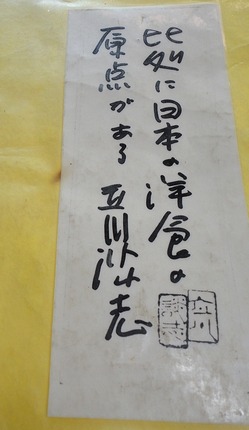 此処に日本の洋食の
原点がある 立川談志
立川
談志